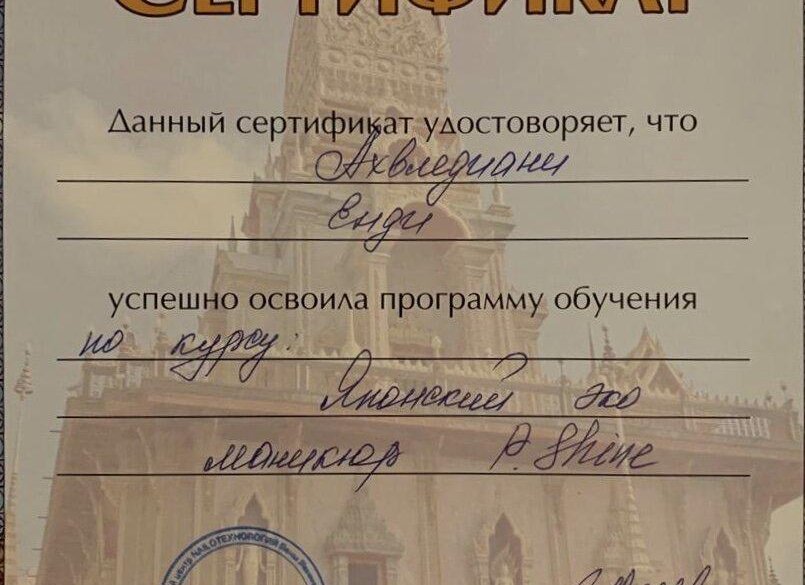 СЕРТИФИКАТ
Данный сертификат удостоворяет, что
Ахвледиани
Енди
успешно освоила программу обучения
по курсу:
Японский эко
маникюр P. Shine
центр NAIL ТЕХНОЛОГИЙ